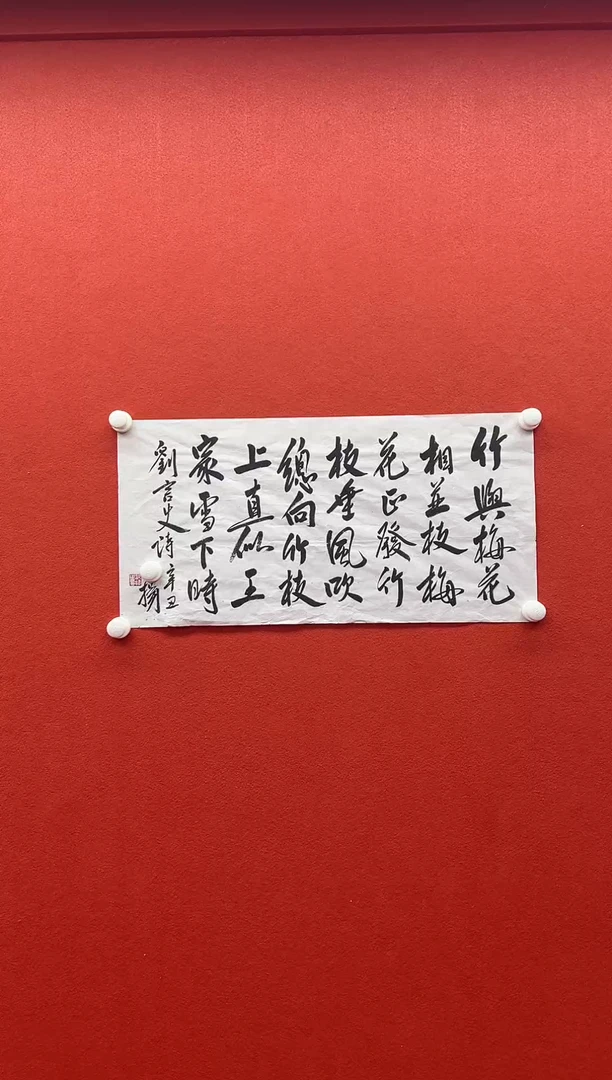 竹與梅花
相並枝梅
花正發竹
枝垂風吹
總向竹枝
上真似王
家雪下時
劉言史詩辛丑